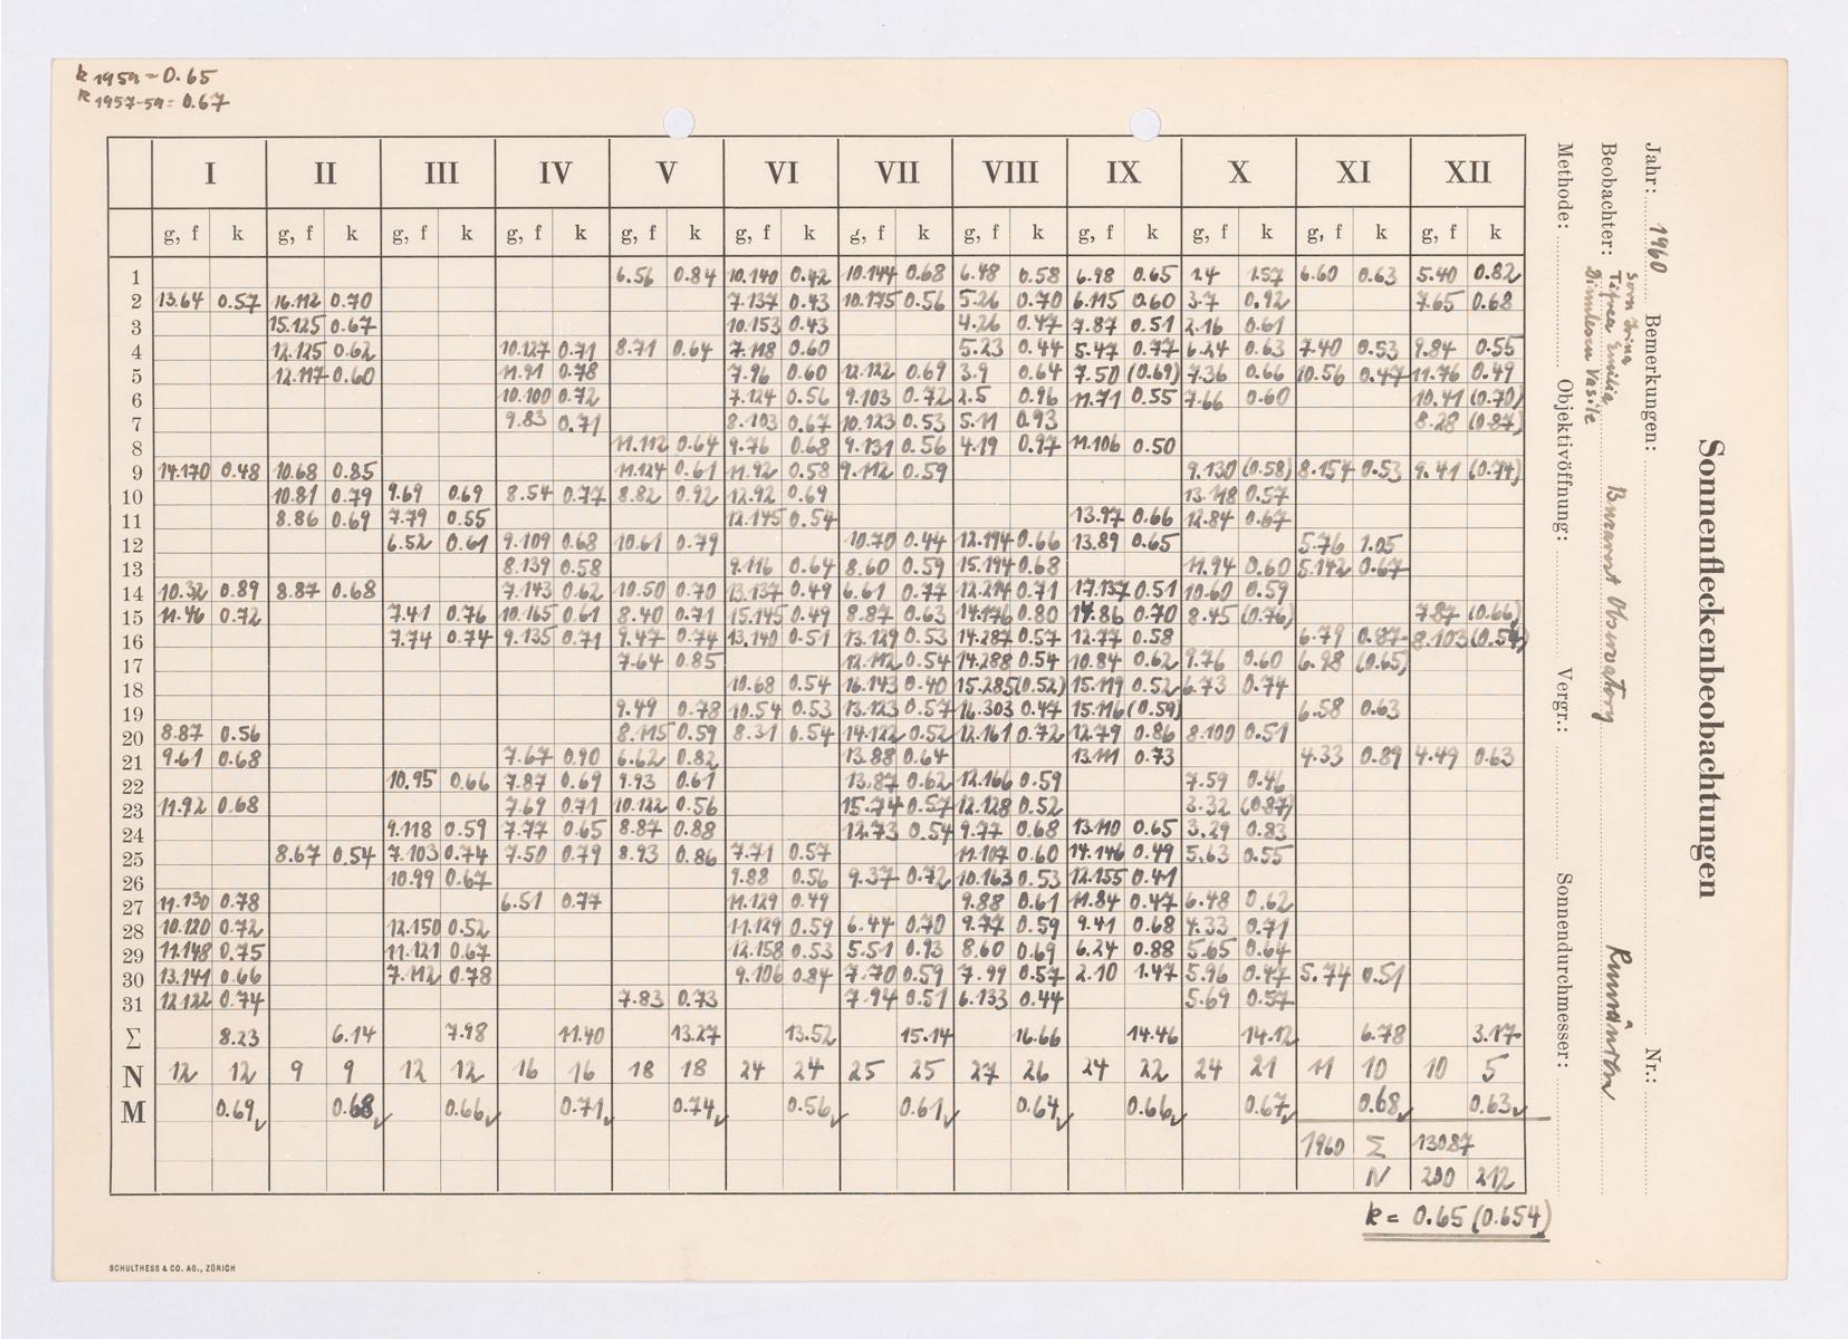 k 1959 = 0.65
k 1957-59 = 0.67
Sonnenfleckenbeobachtungen
Jahr: 1960 Bemerkungen: Nr.:
Beobachter: Bucarest Observatory
Methode: Objektivöffnung: Vergr.: Sonnendurchmesser:
I II III IV V VI VII VIII IX X XI XII
g, f k g, f k g, f k g, f k g, f k g, f k g, f k g, f k g, f k g, f k g, f k g, f k
1 6.56 0.84 10.140 0.42 10.144 0.68 6.48 0.58 6.98 0.65 1.4 1.57 6.60 0.63 5.40 0.82
2 13.64 0.57 16.112 0.70 7.137 0.43 10.175 0.56 5.26 0.70 6.115 0.60 3.7 0.92 7.65 0.68
3 15.125 0.67 10.153 0.43 4.26 0.47 7.87 0.51 2.16 0.61
4 12.125 0.62 10.127 0.71 8.71 0.64 7.118 0.60 5.23 0.44 5.47 0.77 6.24 0.63 7.40 0.53 9.84 0.55
5 12.117 0.60 11.91 0.78 7.96 0.60 12.122 0.69 3.9 0.64 7.50 (0.69) 7.36 0.66 10.56 0.47 11.76 0.49
6 10.100 0.72 7.124 0.56 9.103 0.72 2.5 0.96 11.71 0.55 7.66 0.60 10.41 (0.70)
7 9.83 0.71 8.103 0.67 10.123 0.53 5.11 0.93 8.28 (0.87)
8 11.112 0.64 9.76 0.68 9.131 0.56 4.19 0.97 11.106 0.50
9 14.170 0.48 10.68 0.85 11.124 0.61 11.92 0.58 9.112 0.59 9.130 (0.58) 8.154 0.53 9.41 (0.74)
10 10.81 0.79 9.69 0.69 8.54 0.77 8.82 0.92 12.92 0.69 13.118 0.57
11 8.86 0.69 7.79 0.55 12.145 0.54 13.97 0.66 12.84 0.67
12 6.52 0.61 9.109 0.68 10.61 0.79 10.70 0.44 12.194 0.66 13.89 0.65 5.76 1.05
13 8.139 0.58 9.116 0.64 8.60 0.59 15.194 0.68 11.94 0.60 5.142 0.67
14 10.32 0.89 8.87 0.68 7.143 0.62 10.50 0.70 13.137 0.49 6.61 0.77 12.214 0.71 17.137 0.51 10.60 0.59
15 11.46 0.72 7.41 0.76 10.165 0.61 8.40 0.71 15.145 0.49 8.87 0.63 14.176 0.80 14.86 0.70 8.45 (0.76) 7.87 (0.66)
16 7.74 0.74 9.135 0.71 9.47 0.74 13.140 0.51 13.129 0.53 14.287 0.57 12.77 0.58 6.79 0.87 8.103 (0.54)
17 7.64 0.85 12.112 0.54 14.288 0.54 10.84 0.62 9.76 0.60 6.98 (0.65)
18 10.68 0.54 16.143 0.40 15.285 (0.52) 15.119 0.52 6.73 0.74
19 9.49 0.78 10.54 0.53 13.123 0.57 16.303 0.47 15.116 (0.59) 6.58 0.63
20 8.87 0.56 8.115 0.59 8.31 0.54 14.122 0.52 12.161 0.72 12.79 0.86 8.100 0.51
21 9.61 0.68 7.67 0.90 6.62 0.82 13.88 0.64 13.111 0.73 4.33 0.89 4.49 0.63
22 10.95 0.66 7.87 0.69 9.93 0.61 13.87 0.62 12.166 0.59 7.59 0.46
23 11.92 0.68 7.69 0.71 10.122 0.56 15.74 0.57 12.128 0.52 3.32 (0.87)
24 9.118 0.59 7.77 0.65 8.87 0.88 12.73 0.54 9.77 0.68 13.110 0.65 3.29 0.83
25 8.67 0.54 7.103 0.74 7.50 0.79 8.93 0.86 7.71 0.57 11.107 0.60 14.146 0.49 5.63 0.55
26 10.99 0.67 9.88 0.56 9.37 0.72 10.163 0.53 12.155 0.41
27 11.130 0.78 6.51 0.77 11.129 0.49 9.88 0.61 11.84 0.47 6.48 0.62
28 10.120 0.72 12.150 0.52 11.129 0.59 6.44 0.70 9.77 0.59 9.41 0.68 4.33 0.71
29 11.148 0.75 11.121 0.67 12.158 0.53 5.51 0.93 8.60 0.69 6.24 0.88 5.65 0.64
30 13.141 0.66 7.112 0.78 9.106 0.84 7.70 0.59 7.99 0.57 2.10 1.47 5.96 0.47 5.74 0.51
31 12.122 0.74 7.83 0.73 7.94 0.51 6.133 0.44 5.69 0.57
Σ 8.23 6.14 7.98 11.40 13.27 13.52 15.14 16.66 14.46 14.12 6.78 3.17
N 12 12 9 9 12 12 16 16 18 18 24 24 25 25 27 26 24 22 24 21 11 10 10 5
M 0.69 0.68 0.66 0.71 0.74 0.56 0.61 0.64 0.66 0.67 0.68 0.63
1960 Σ 130.87
N 200 212
k = 0.65 (0.654)
SCHULTHESS & CO. AG., ZÜRICH